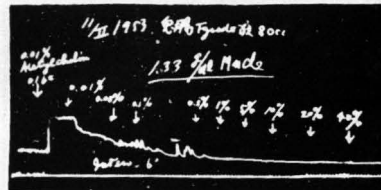 11/XI 1953. Tyrode 液 80cc
1.33 Made
0.01%
Acetylcholin
0.1cc
0.01% 0.05% 0.1% 0.5% 1% 5% 10% 20% 40%
Interv. 6'